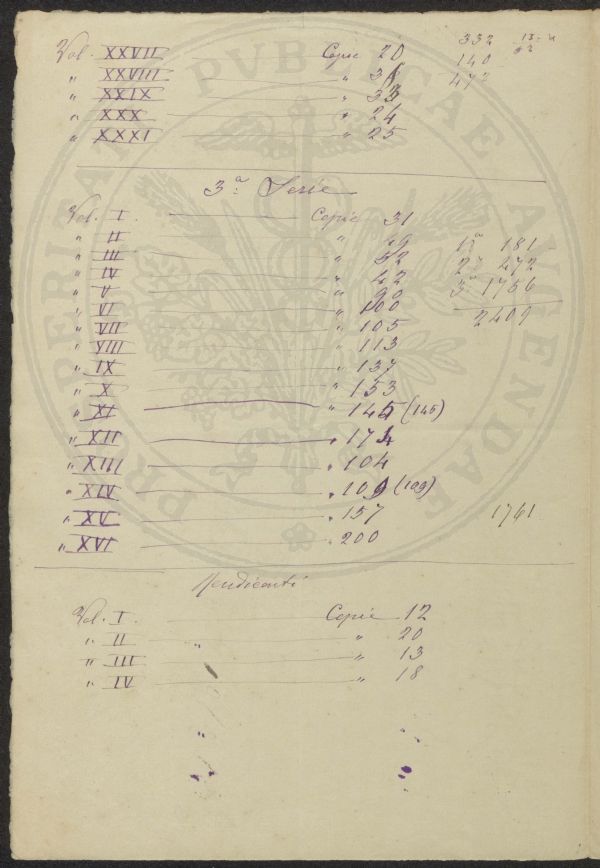 Vol. XXVII Copie 20 332
„ XXVIII „ 140
„ XXIX „ 33 472
„ XXX „ 24
„ XXXI „ 25
3ª Serie
Vol. I. Copie 31
„ II „ 1ª 181
„ III „ 52 2ª 272
„ IV „ 42 3ª 1756
„ V „ 90
„ VI „ 100 2409
„ VII „ 105
„ VIII „ 113
„ IX „ 137
„ X „ 153
„ XI „ 145 (145)
„ XII „ 174
„ XIII „ 104
„ XIV „ 109 (109)
„ XV „ 157 1761
„ XVI „ 200
Rendiconti
Vol. I. Copie 12
„ II „ „ 20
„ III „ 13
„ IV „ 18
PUBLICAE
PROSPERITATI
AUGENDAE